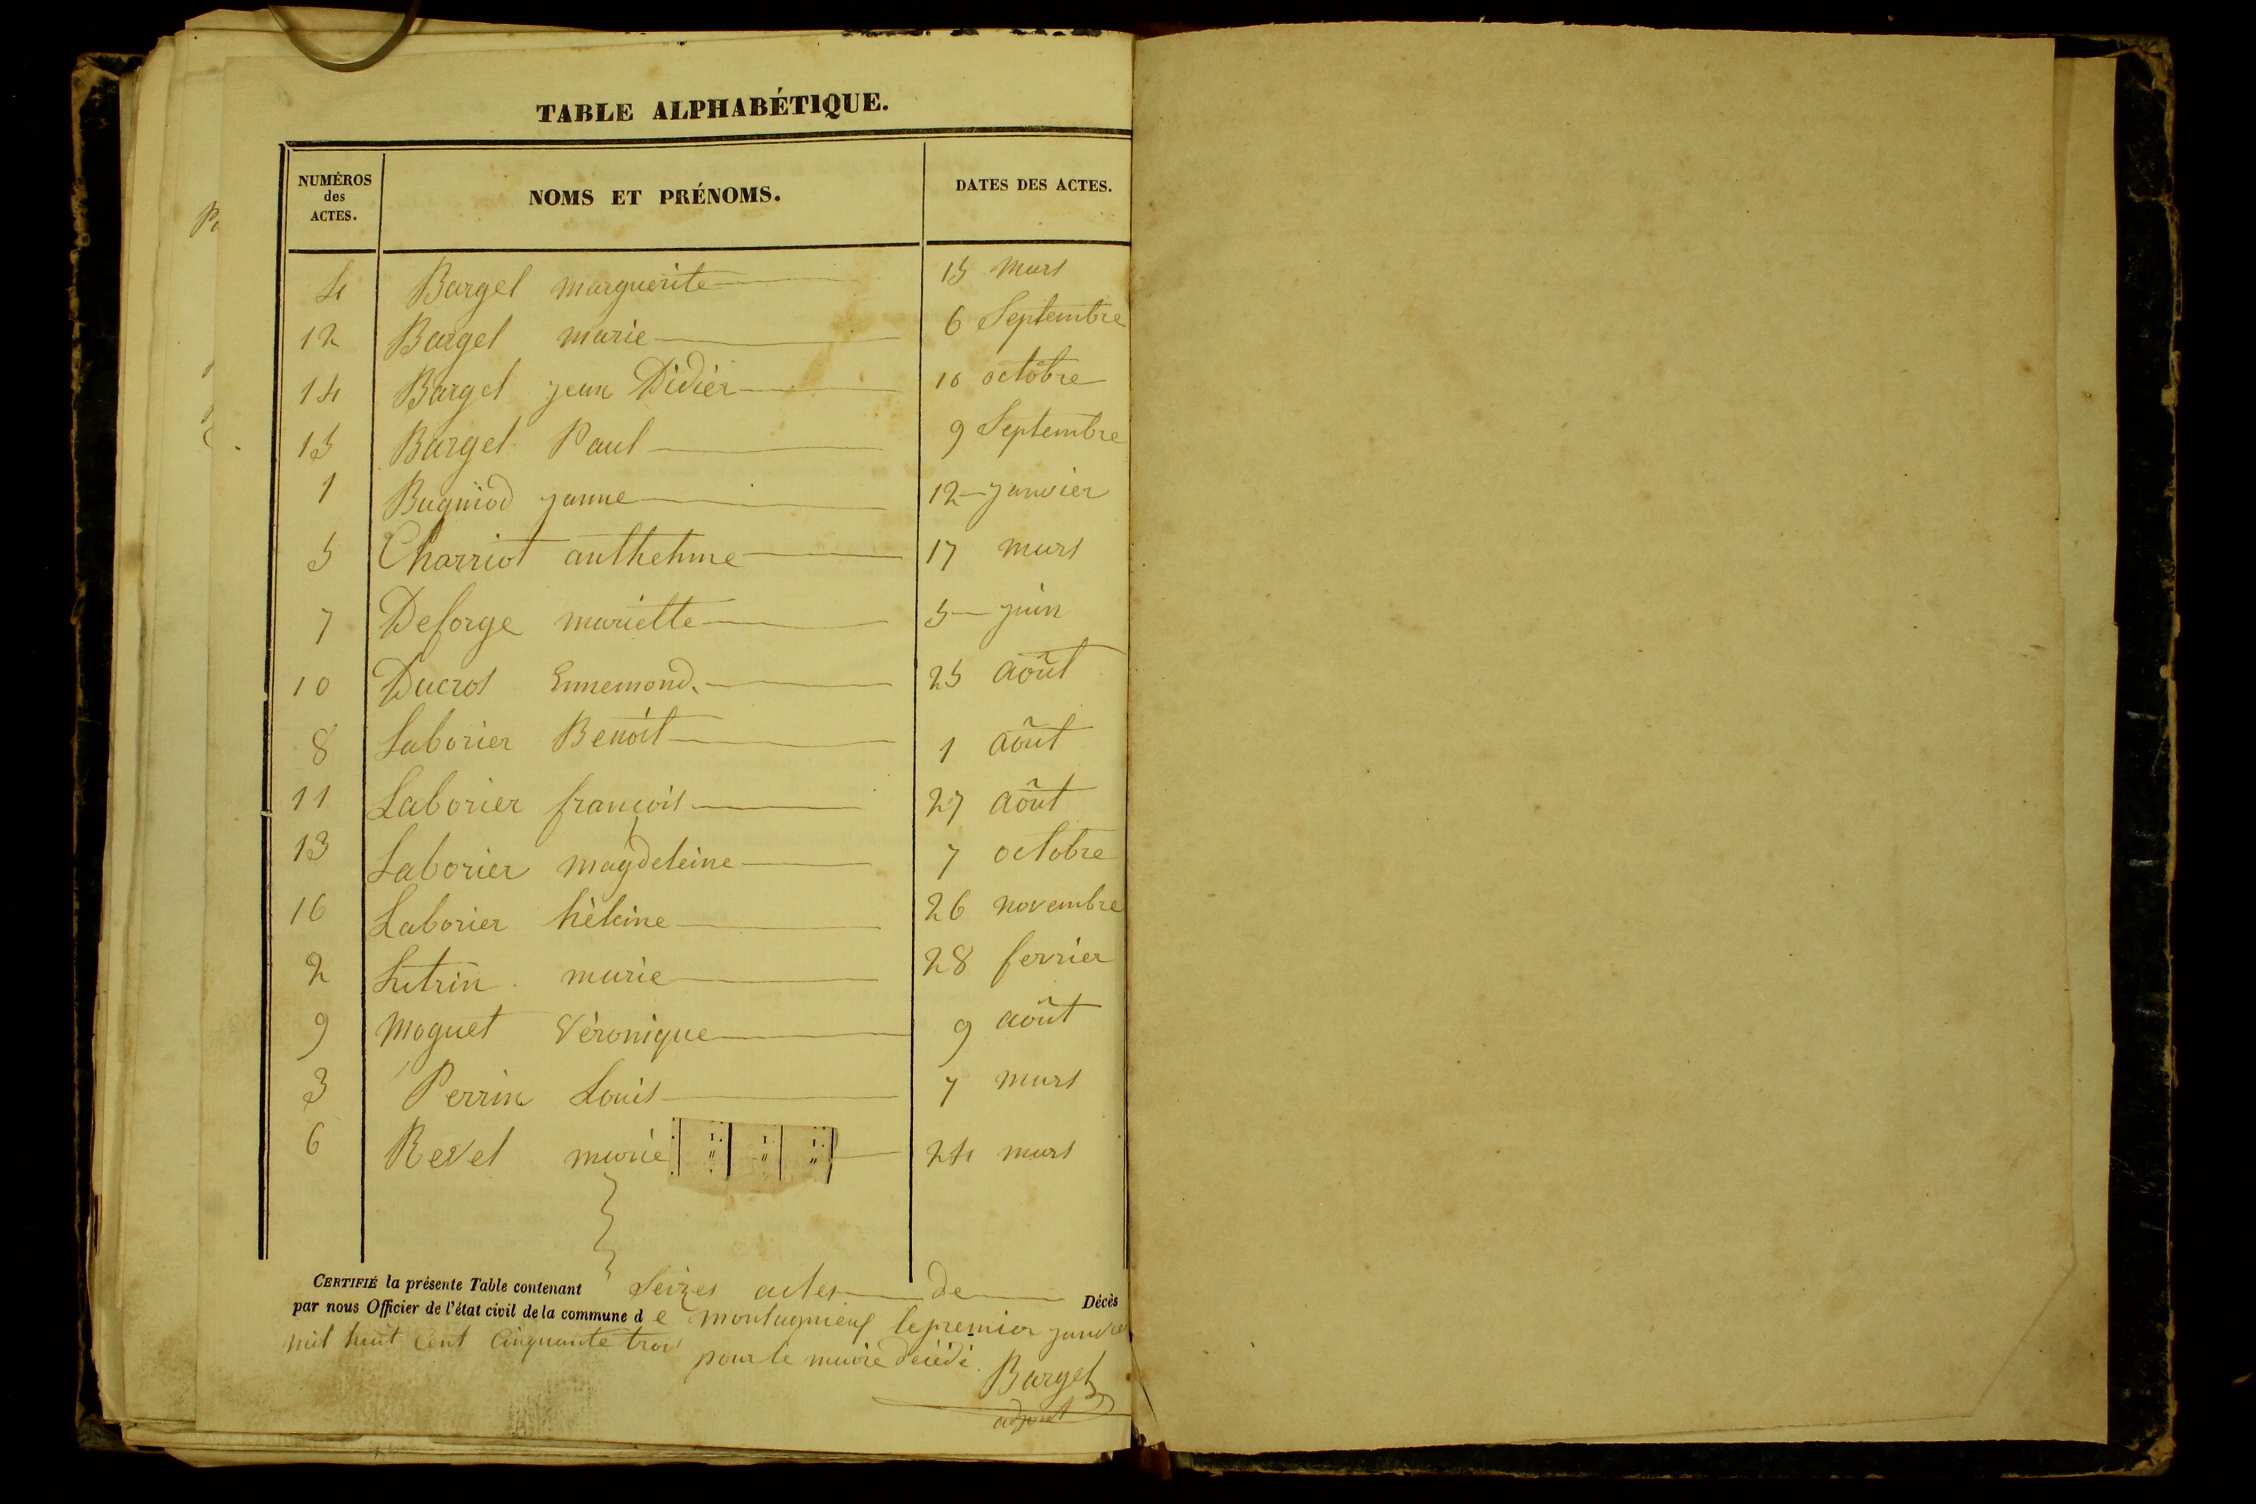 TABLE ALPHABÉTIQUE.
NUMÉROS des ACTES. NOMS ET PRÉNOMS. DATES DES ACTES.
4 Bargel marguerite 15 mars
12 Bargel marie 6 Septembre
14 Bargel jean Didier 10 octobre
15 Bargel Paul 9 Septembre
1 Bugniod janne 12 janvier
5 Charriot anthelme 17 mars
7 Deforge mariette 5 juin
10 Ducros Ennemond. 25 août
8 Laborier Benoit 1 août
11 Laborier françois 27 août
13 Laborier magdeleine 7 octobre
16 Laborier hèleine 26 novembre
2 Lutrin marie 28 fevrier
9 Moguet Véronique 9 août
3 Perrin Louis 7 mars
6 Revel marie 24 mars
CERTIFIÉ la présente Table contenant Seizes actes de Décès
par nous Officier de l'état civil de la commune de montagnieux le premier janvier
mil huit cent cinquante trois
pour le maire décédé.
Bargel
adjoint